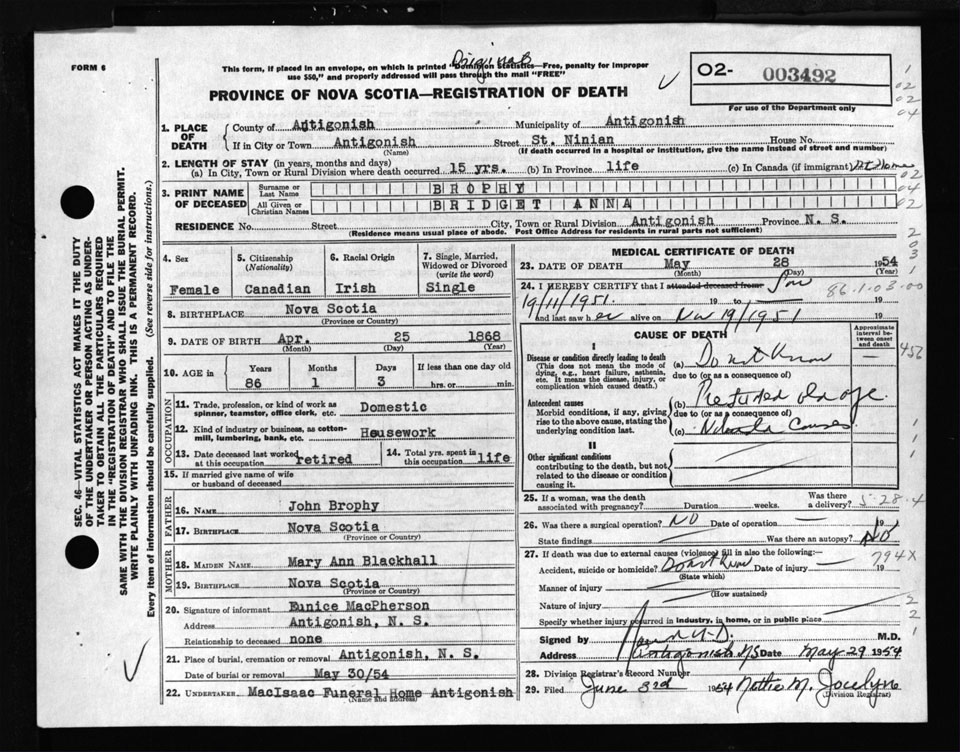 FORM 6
Original
This form, if placed in an envelope, on which is printed "Dominion Statistics—Free, penalty for improper
use $50," and properly addressed will pass through the mail "FREE"
PROVINCE OF NOVA SCOTIA—REGISTRATION OF DEATH
02- 003492
For use of the Department only
1. PLACE OF DEATH
County of Antigonish Municipality of Antigonish
If in City or Town Antigonish Street St. Ninian House No.
(Name) (If death occurred in a hospital or institution, give the name instead of street and number)
2. LENGTH OF STAY (in years, months and days)
(a) In City, Town or Rural Division where death occurred 15 yrs. (b) In Province life (c) In Canada (if immigrant)
3. PRINT NAME OF DECEASED
Surname or Last Name BROPHY
All Given or Christian Names BRIDGET ANNA
RESIDENCE No. Street City, Town or Rural Division Antigonish Province N. S.
(Residence means usual place of abode. Post Office Address for residents in rural parts not sufficient)
SEC. 46—VITAL STATISTICS ACT MAKES IT THE DUTY
OF THE UNDERTAKER OR PERSON ACTING AS UNDER-
TAKER TO OBTAIN ALL THE PARTICULARS REQUIRED
IN THE "REGISTRATION OF DEATH" AND TO FILE THE
SAME WITH THE DIVISION REGISTRAR WHO SHALL ISSUE THE BURIAL PERMIT.
WRITE PLAINLY WITH UNFADING INK. THIS IS A PERMANENT RECORD.
Every item of information should be carefully supplied. (See reverse side for instructions.)
4. Sex 5. Citizenship (Nationality) 6. Racial Origin 7. Single, Married, Widowed or Divorced (write the word)
Female Canadian Irish Single
8. BIRTHPLACE Nova Scotia
(Province or Country)
9. DATE OF BIRTH Apr. 25 1868
(Month) (Day) (Year)
10. AGE in Years Months Days If less than one day old
86 1 3 hrs. or min.
OCCUPATION
11. Trade, profession, or kind of work as spinner, teamster, office clerk, etc. Domestic
12. Kind of industry or business, as cotton-mill, lumbering, bank, etc. Housework
13. Date deceased last worked at this occupation retired 14. Total yrs. spent in this occupation life
15. If married give name of wife or husband of deceased
FATHER
16. NAME John Brophy
17. BIRTHPLACE Nova Scotia
(Province or Country)
MOTHER
18. MAIDEN NAME Mary Ann Blackhall
19. BIRTHPLACE Nova Scotia
(Province or Country)
20. Signature of informant Eunice MacPherson
Address Antigonish, N. S.
Relationship to deceased none
21. Place of burial, cremation or removal Antigonish, N. S.
Date of burial or removal May 30/54
22. UNDERTAKER MacIsaac Funeral Home Antigonish
(Name and address)
MEDICAL CERTIFICATE OF DEATH
23. DATE OF DEATH May 28 1954
(Month) (Day) (Year)
24. I HEREBY CERTIFY that I attended deceased from: Saw
19/11/1951. 19 to 19
86.1.03.00
and last saw her alive on Nov 19/1951 19
CAUSE OF DEATH
Approximate interval between onset and death
I
Disease or condition directly leading to death
(This does not mean the mode of dying, e.g., heart failure, asthenia, etc. It means the disease, injury, or complication which caused death.)
(a) Do not know
due to (or as a consequence of)
Antecedent causes
Morbid conditions, if any, giving rise to the above cause, stating the underlying condition last.
(b) old age.
due to (or as a consequence of)
(c) Causes
II
Other significant conditions
contributing to the death, but not related to the disease or condition causing it.
25. If a woman, was the death associated with pregnancy? Duration weeks. Was there a delivery?
5-28-4
26. Was there a surgical operation? NO Date of operation 19
State findings Was there an autopsy? NO
27. If death was due to external causes (violence) fill in also the following:
794X
Accident, suicide or homicide? Do not know Date of injury 19
(State which)
Manner of injury
(How sustained)
Nature of injury
Specify whether injury occurred in industry, in home, or in public place
Signed by M.D.
Address Antigonish NS Date May 29 1954
28. Division Registrar's Record Number
29. Filed June 3rd 1954 Nettie M. Jocelyne
(Division Registrar)